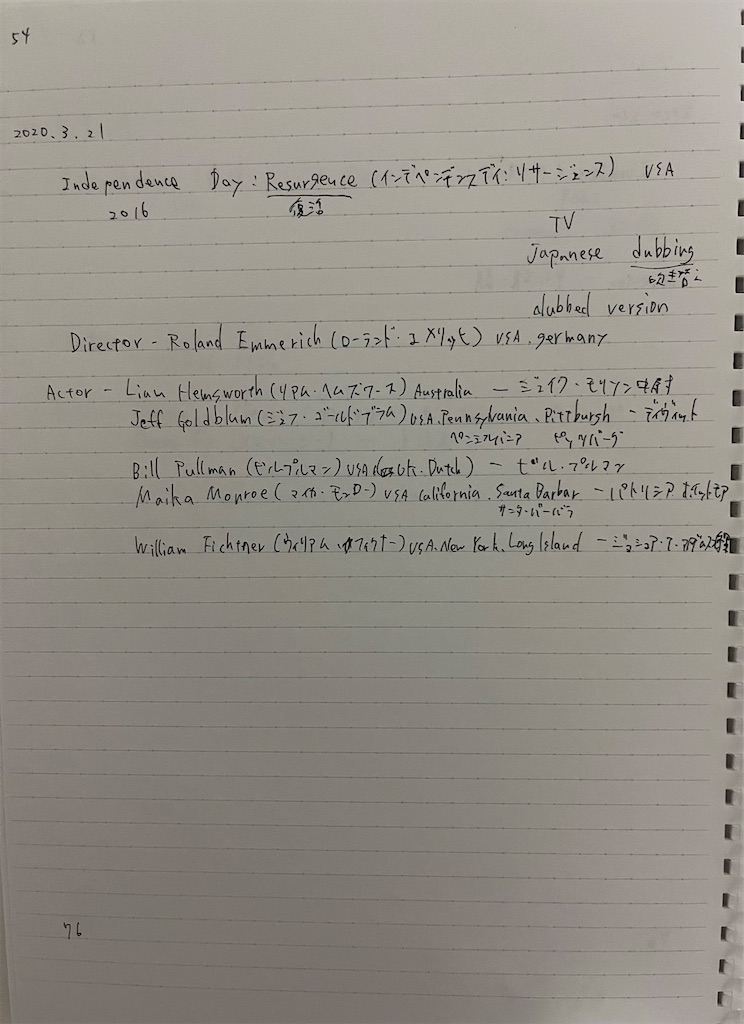 54
2020.3.21
Independence Day : Resurgence (インデペンデンスデイ:リサージェンス) USA
2016 復活
TV
Japanese dubbing
dubbed version
Director - Roland Emmerich (ローランド・エメリッヒ) USA. germany
Actor - Liam Hemsworth (リアム・ヘムズワース) Australia - ジェイク・モリソン中尉
Jeff Goldblum (ジェフ・ゴールドブラム) USA. Pennsylvania. Pittburgh - ディヴィット
ペンシルバニア ピッツバーグ
Bill Pullman (ビルプルマン) USA (UK. Dutch) - ビル・プルマン
Maika Monroe (マイカ・モンロー) USA California. Santa Barbar - パトリシア ホイットモア
サンタ・バーバラ
William Fichtner (ウィリアム・フィクナー) USA. New York. Long Island - ジョシュア・T・アダムス
76